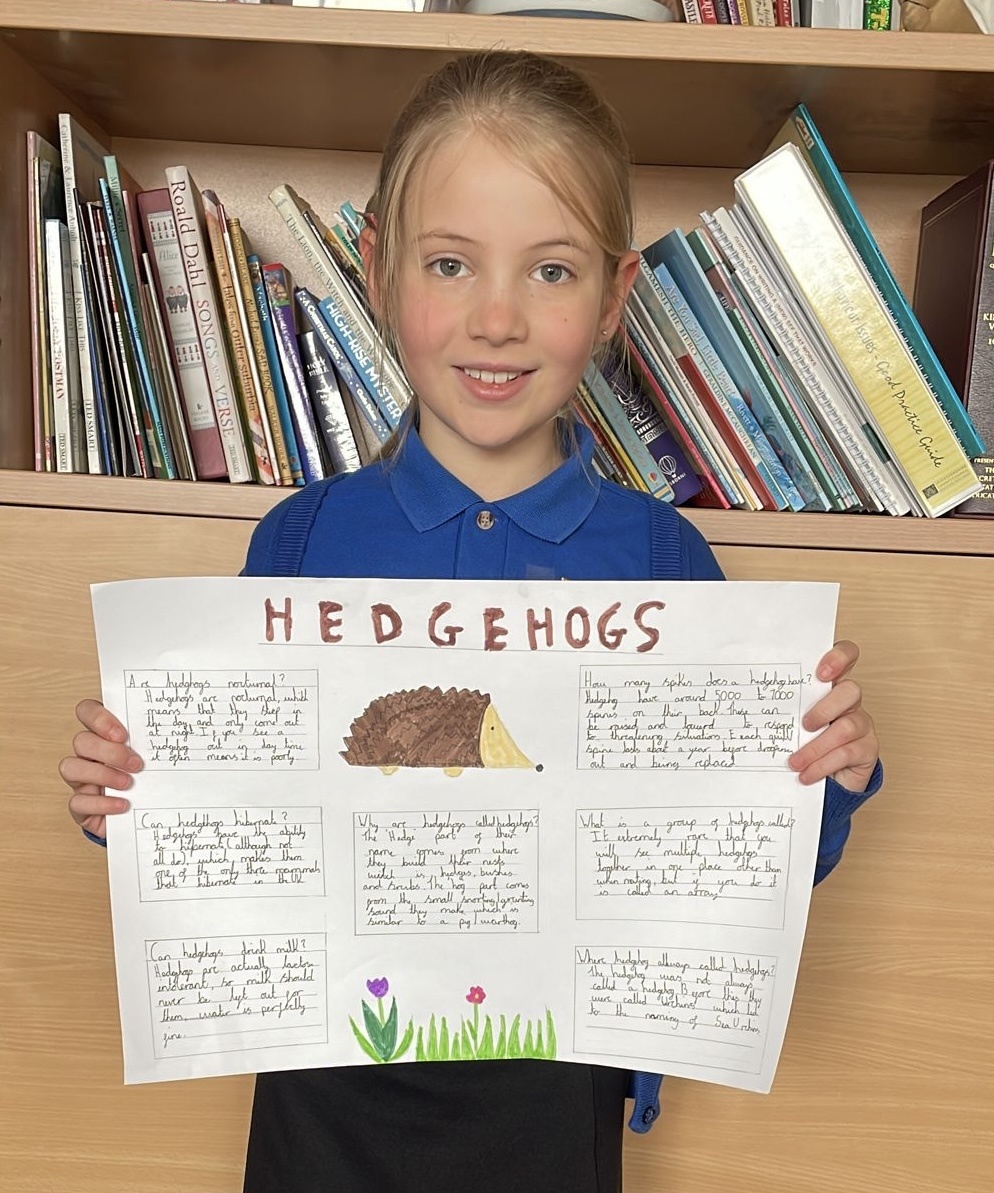 Roald Dahl SONGS and VERSE
Alice
TED SMART
HOLY BIBLE
The Lion, the Witch
HIGH-RISE MYSTERY
Good Practice Guide
HEDGEHOGS
Are hedghogs nocturnal?
Hedgehogs are nocturnal, which
means that they sleep in
the day and only come out
at night. If you see a
hedgehog out in day time
it often means it is poorly.
How many spikes does a hedgehog have?
Hedgehog have around 5000 to 7000
spines on their back. These can
be raised and lowerd to respond
to threatening situations. Each quill/
spine lasts about a year before dropping
out and being replaced.
Can hedghogs hibernate?
Hedgehogs have the ability
to hibernate (although not
all do) which makes them
one of the only three mammals
that hibernate in the UK
Why are hedgehogs called hedgehogs?
The 'Hedge' part of their
name comes from where
they build their nests
which is hedges, bushes
and srubs. The 'hog' part comes
from the small snorting/grunting
sound they make which is
similar to a pig/warthog.
What is a group of hedgehogs called?
It extremely rare that you
will see multiple hedgehogs
together in one place other than
when mating, but if you do it
is called an array
Can hedgehogs drink milk?
Hedgehogs are actually lactose
intolerant, so milk should
never be left out for
them, water is perfectly
fine.
Where hedgehog allways called hedgehogs?
The hedgehog was not always
called a hedgehog. Before this they
were called 'Urchins' which led
to the naming of Sea Urchins